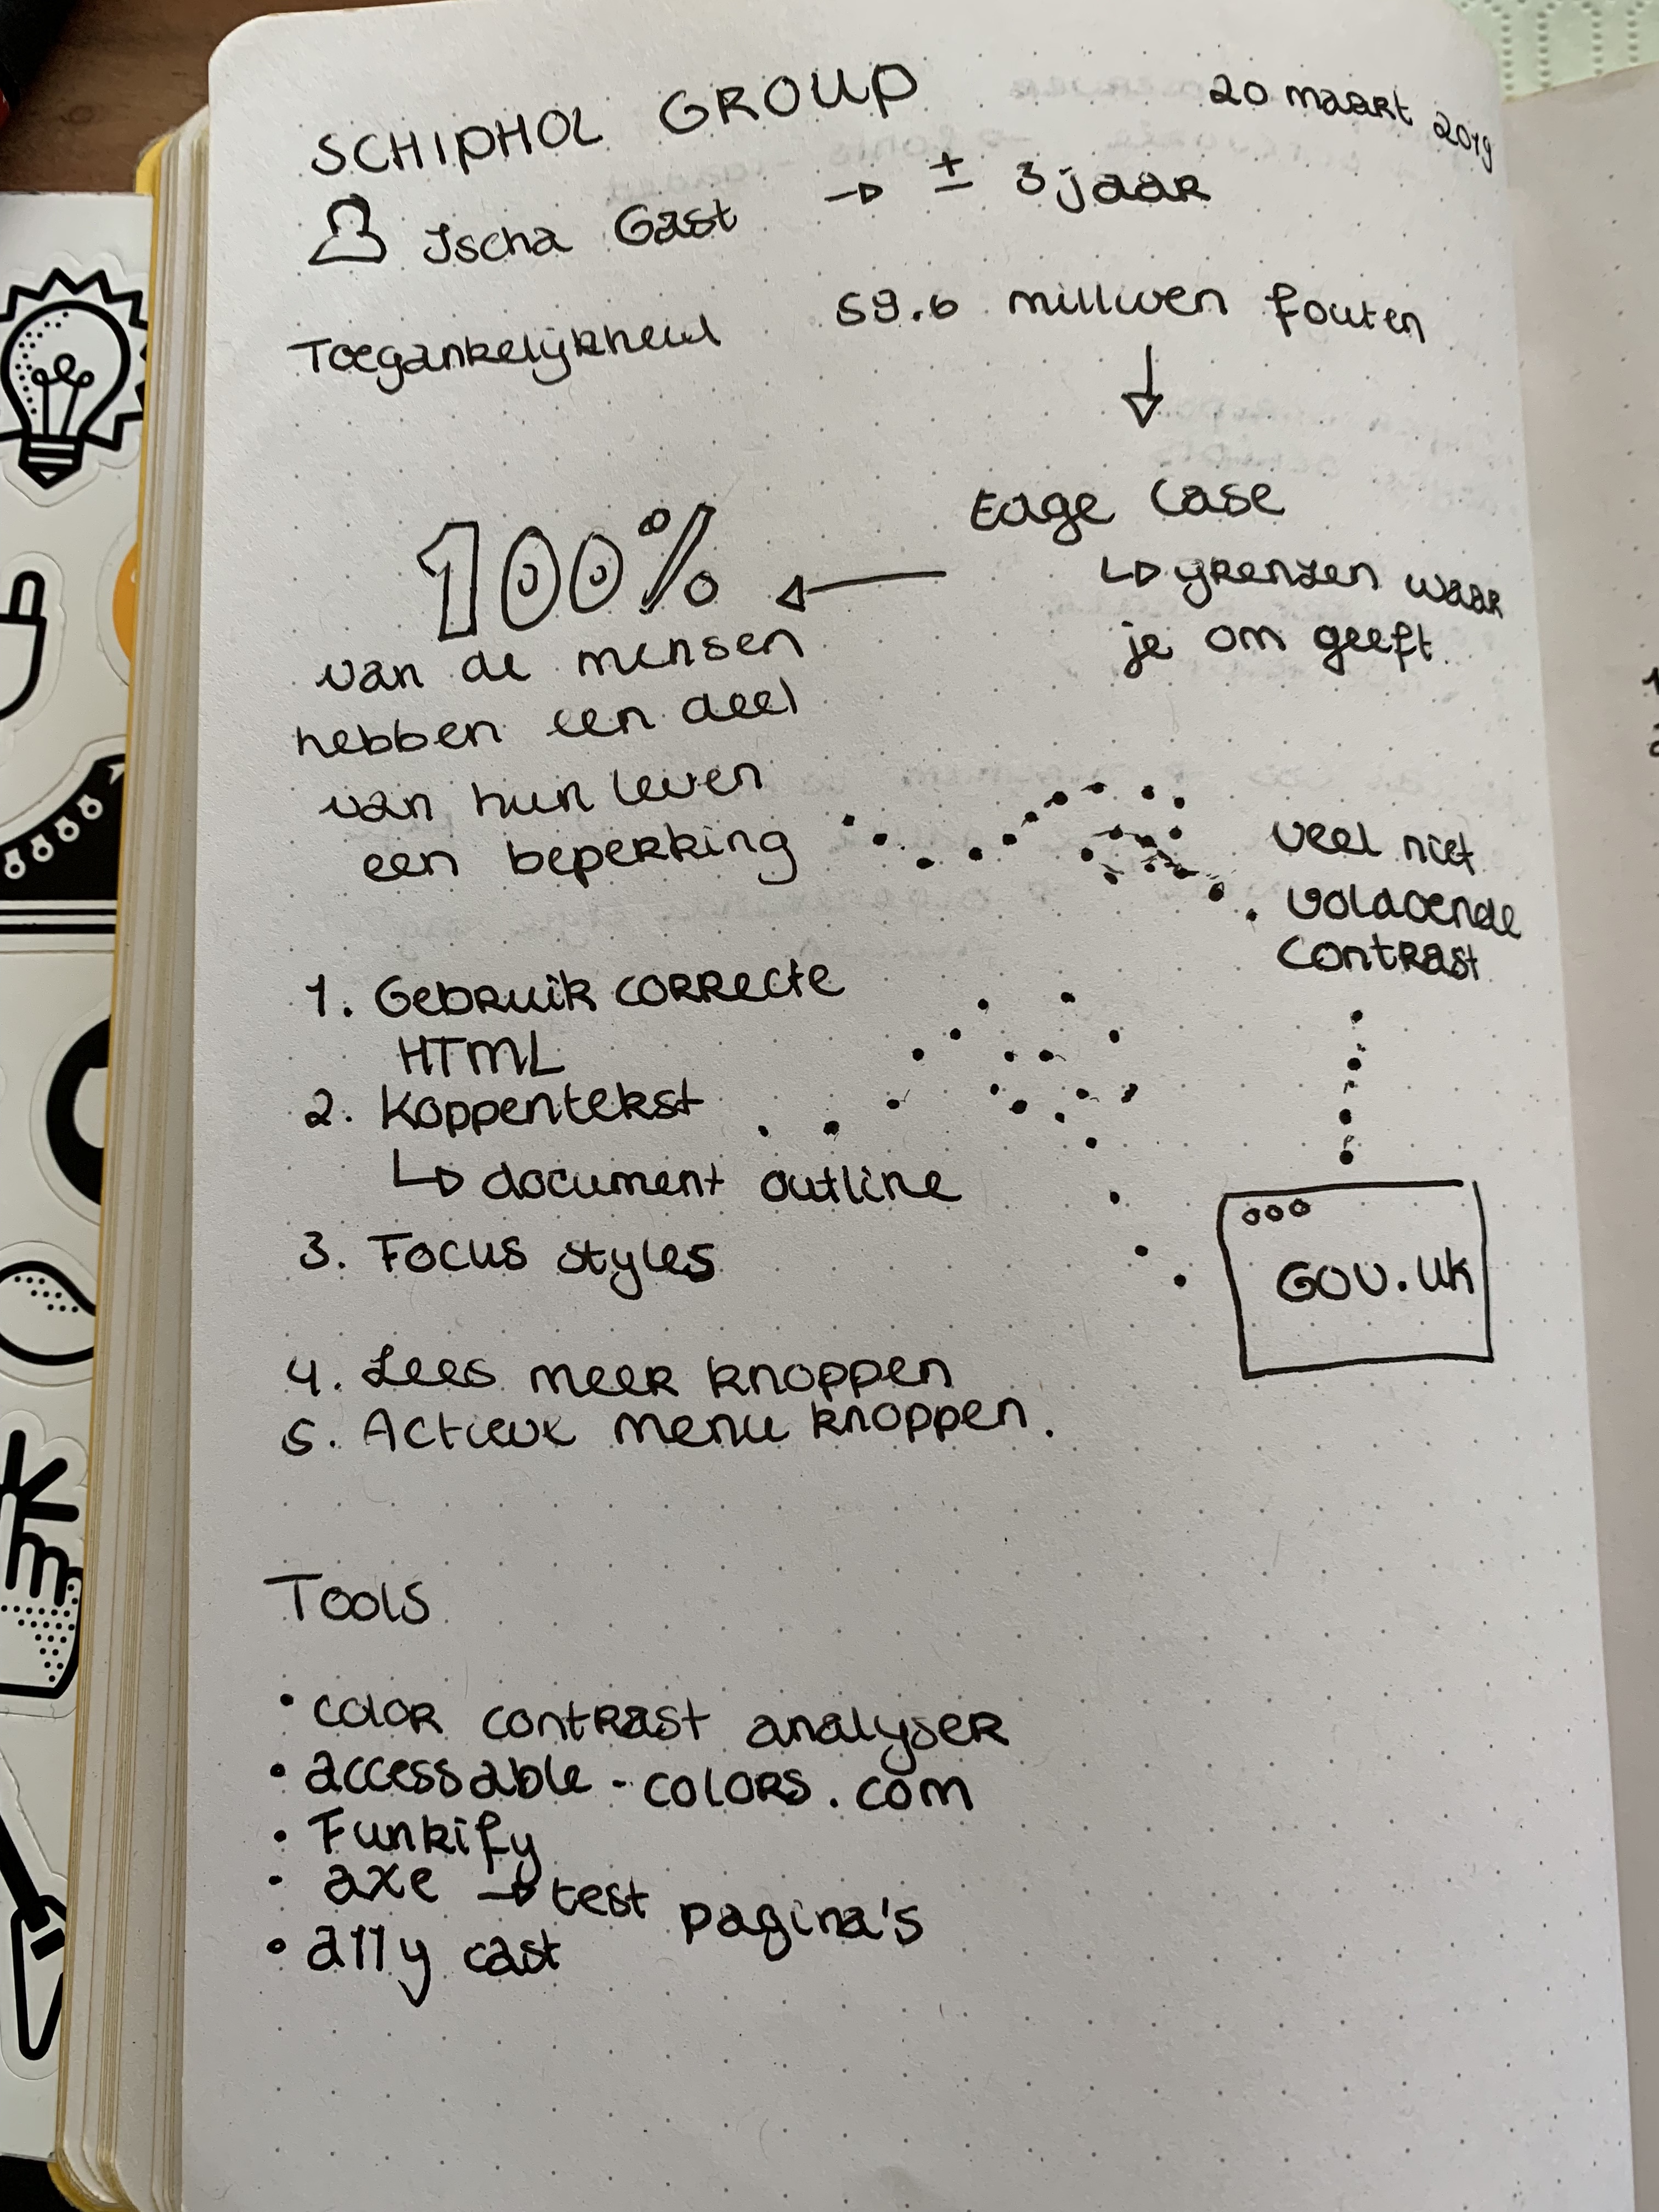 SCHIPHOL GROUP
20 maart 2019
Ischa Gast → ± 3 jaar
Toegankelijkheid
59.6 millioen fouten
Edge Case
↳ grenzen waar
je om geeft
100%
van de mensen
hebben een deel
van hun leven
een beperking
veel niet
voldoende
contrast
1. Gebruik correcte
HTML
2. Koppentekst
↳ document outline
3. Focus styles
GOV.UK
4. Lees meer knoppen
5. Actieve menu knoppen.
Tools
• color contrast analyser
• accessable-colors.com
• Funkify
• axe → test pagina's
• a11y cast